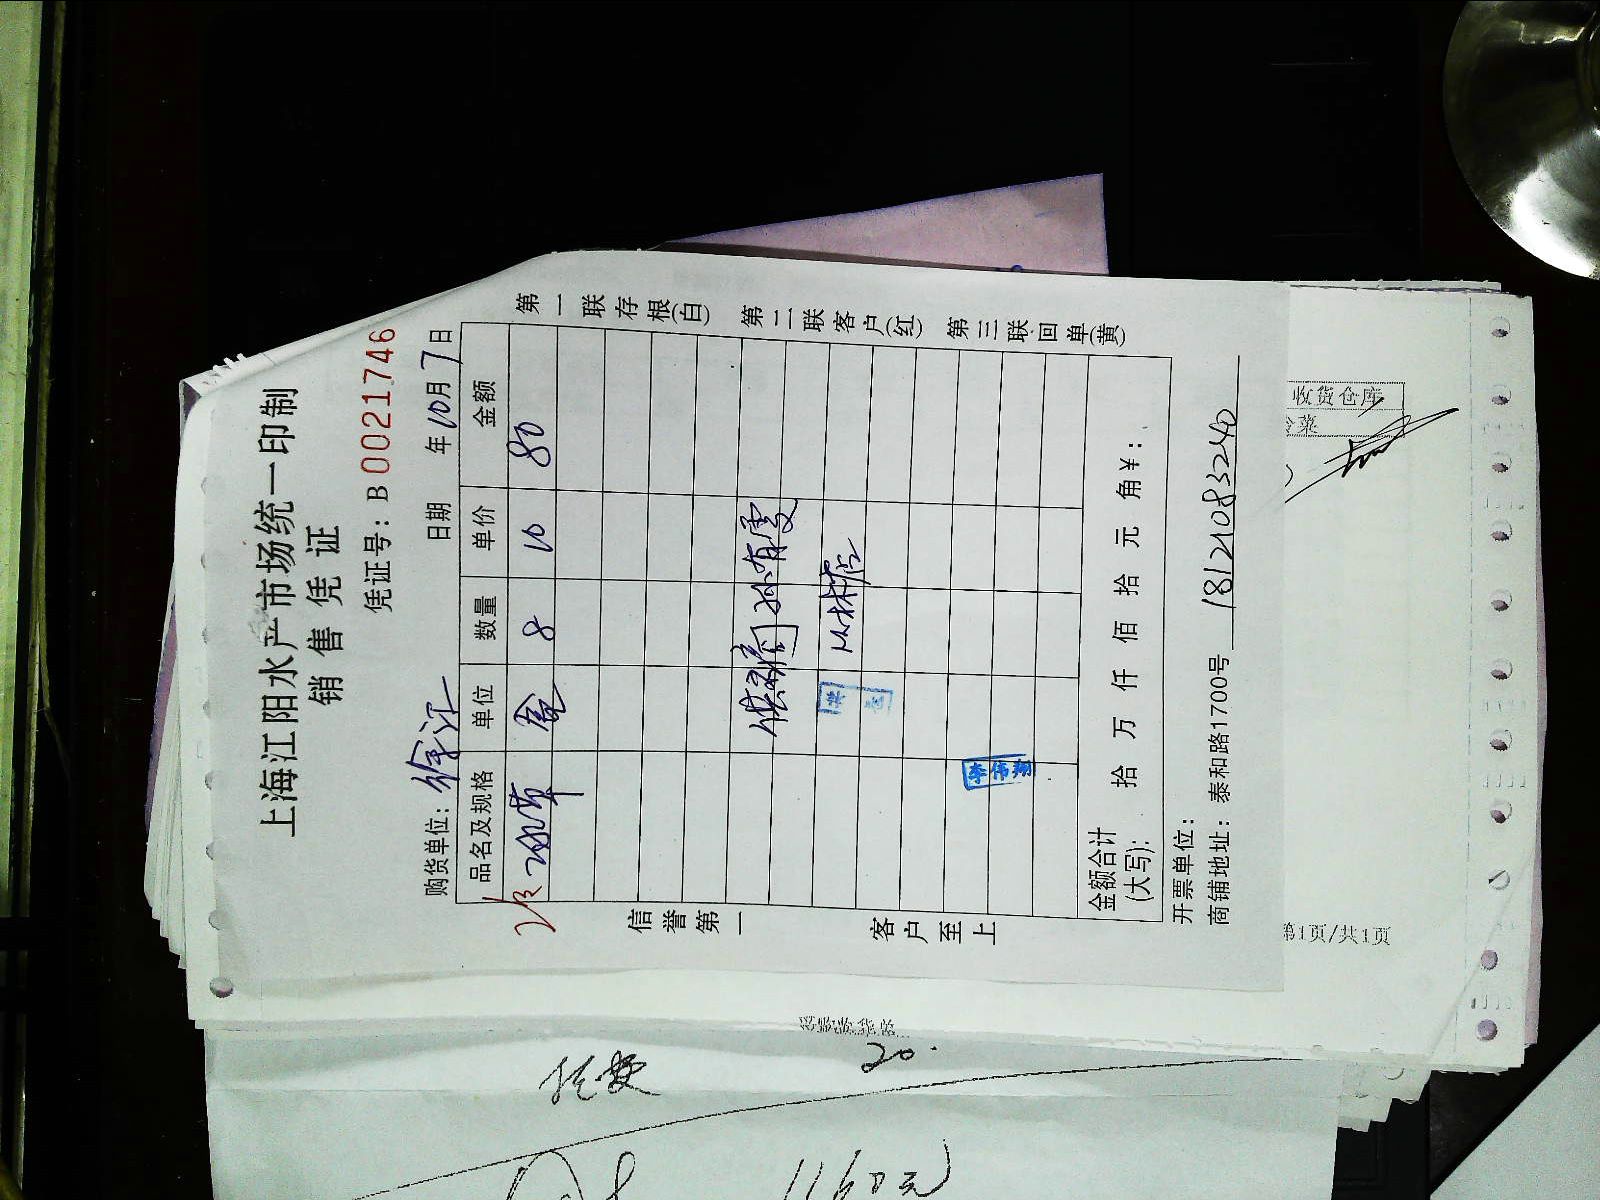 上海江阳水产市场统一印制
销售凭证
凭证号：B 0021746
购货单位：徐汇 日期 年10月7日
品名及规格 单位 数量 单价 金额
盒 8 10 80
孙有雯
信誉第一
客户至上
第一联存根(白)
第二联客户(红)
第三联回单(黄)
李伟翔
金额合计(大写)： 拾 万 仟 佰 拾 元 角￥：
开票单位：
商铺地址：泰和路1700号 18121083240
收货仓库
冷菜
第1页/共1页
20.
1160元